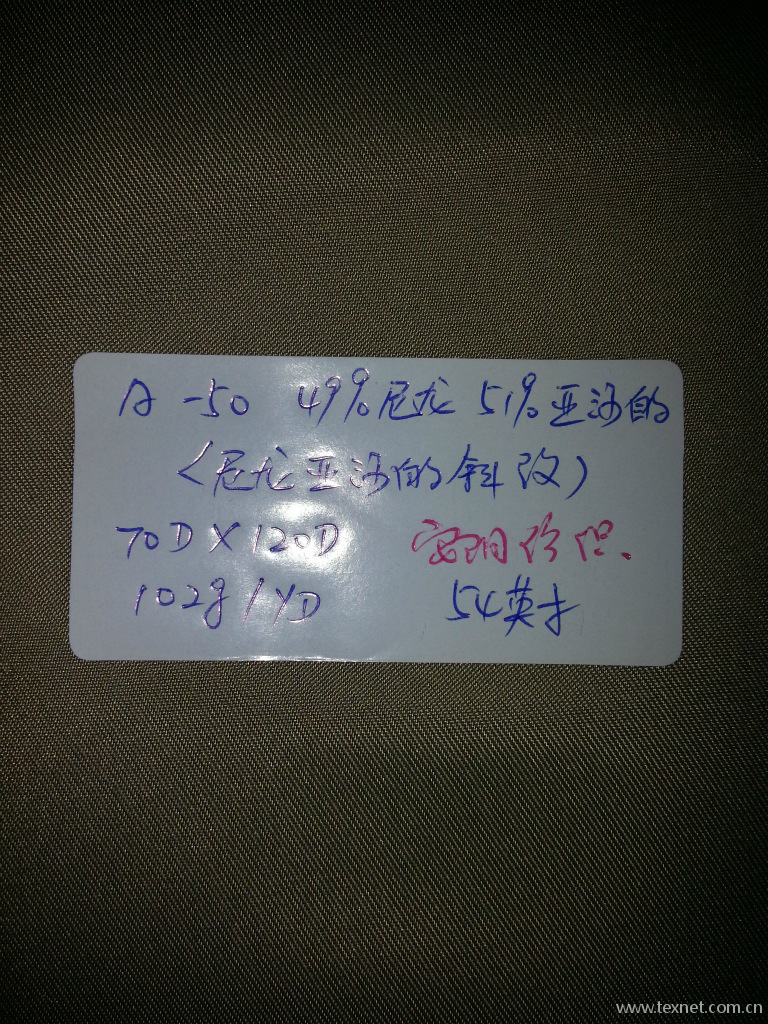 A-50 49%尼龙 51%亚沙的
(尼龙亚沙的斜改)
70D X 120D
102g/YD 54英寸
www.texnet.com.cn